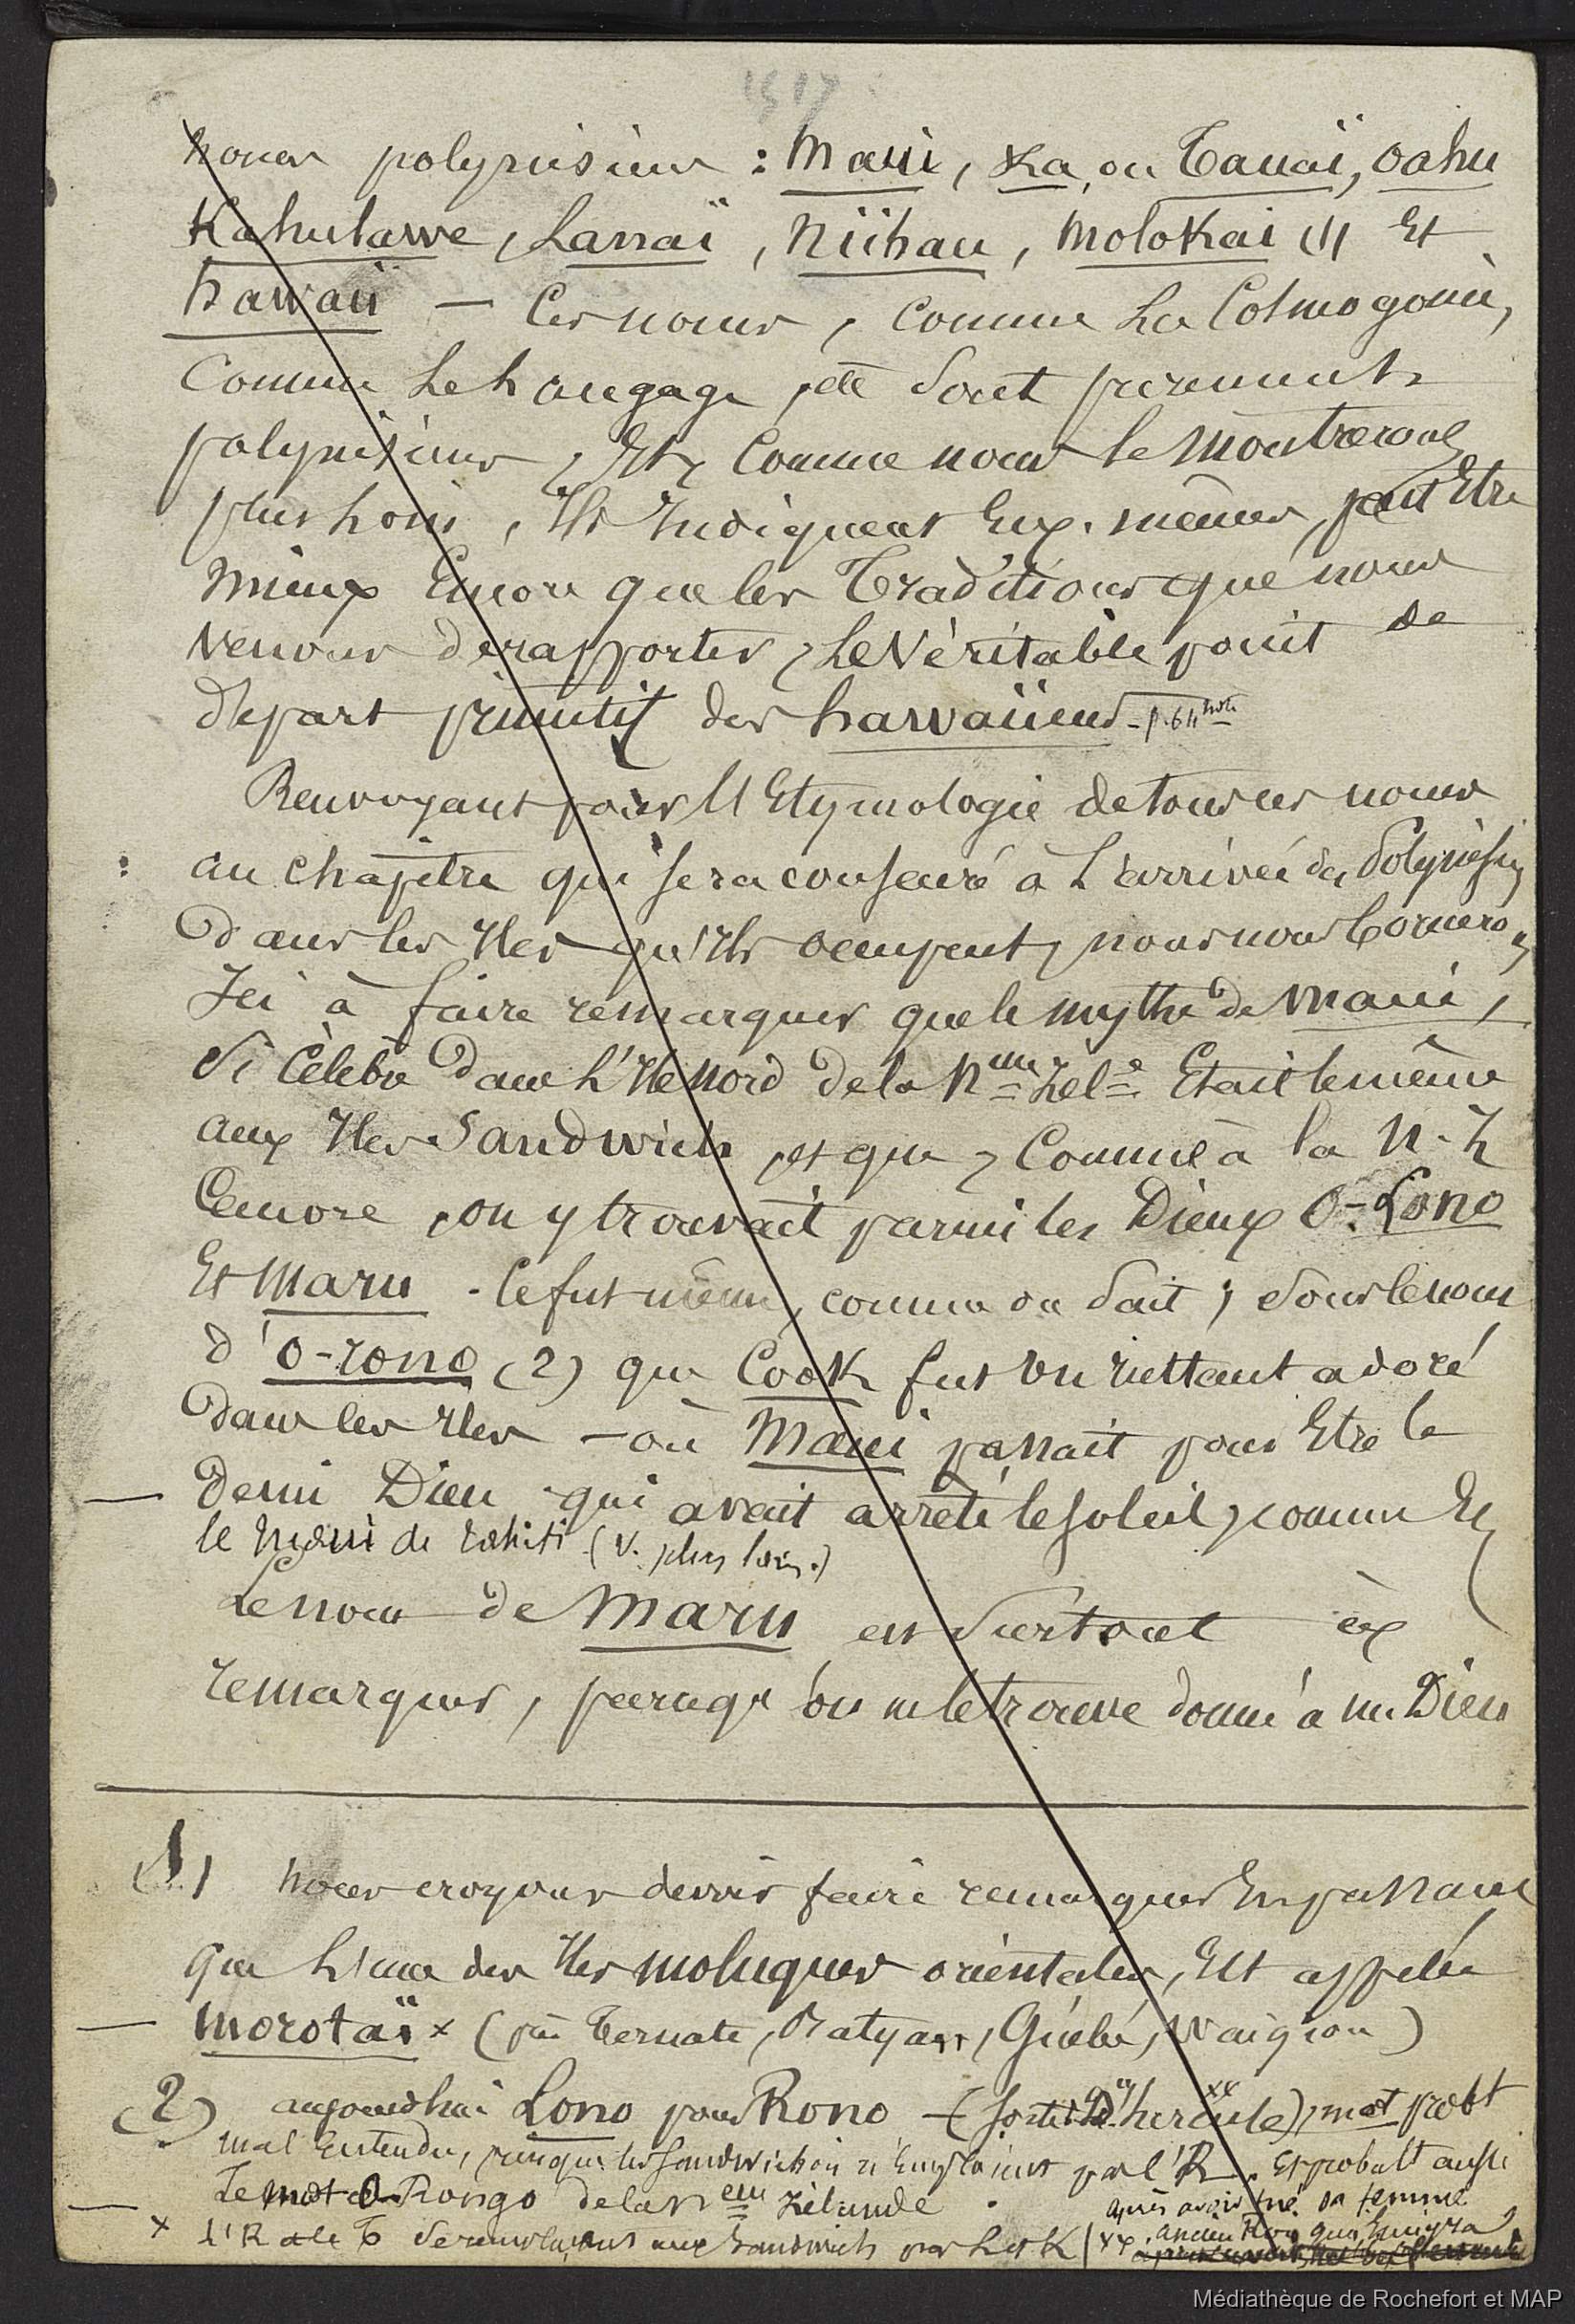 1517
noms polynésiens : Maui, Ka, ou Tauaï, Oahu
Kahulawe, Lanaï, Niihau, Molokai (1) Et
hawaii — Ces noms, comme la Cosmogonie,
Comme le langage, etc sont purement
polynésiens, Et, comme nous le montrerons
plus loin, Ils Indiquent Eux-mêmes, peut Etre
mieux Encore que les Traditions que nous
venons de rapporter, le véritable point de
départ primitif des hawaiiens - p. 64 note
Renvoyant pour l'Etymologie de tous ces noms
au chapitre qui sera consacré à l'arrivée des Polynésiens
dans les Iles qu'Ils occupent, nous nous bornerons
Ici à faire remarquer que le mythe de maui,
si célèbre dans l'Ile nord de la Nlle Zele Etait le même
aux Iles Sandwich, et que, comme à la N-Z
Encore, on y trouvait parmi les Dieux O-Lono
Et Maru - Ce fut même, comme on sait, sous le nom
d'O-rono (2) que Cook fut un instant adoré
dans les Iles - où Maui passait pour Etre le
demi Dieu qui avait arrêté le soleil, comme
le Maui de Tahiti (v. plus loin.)
Le nom de Maru est surtout à
remarquer, parce qu'on ne le trouve donné à un Dieu
(1) nous croyons devoir faire remarquer En passant
que l'une des Iles moluques orientales, Est appelée
Morotaï x (près Ternate, Batyan, Guébé, Waigiou)
(2) aujourd'hui Lono pour Rono - (sorte d'hercule) xx, mot probt
mal Entendu, puisque les Sandwichois n'Employaient pas l'R. Et probablt aussi
Le mot O-Rongo de la Nelle Zélande.
x L'R et le T se remplaçant aux Sandwich par L et K
xx ancien Roi qui Emigra
après avoir tué sa femme